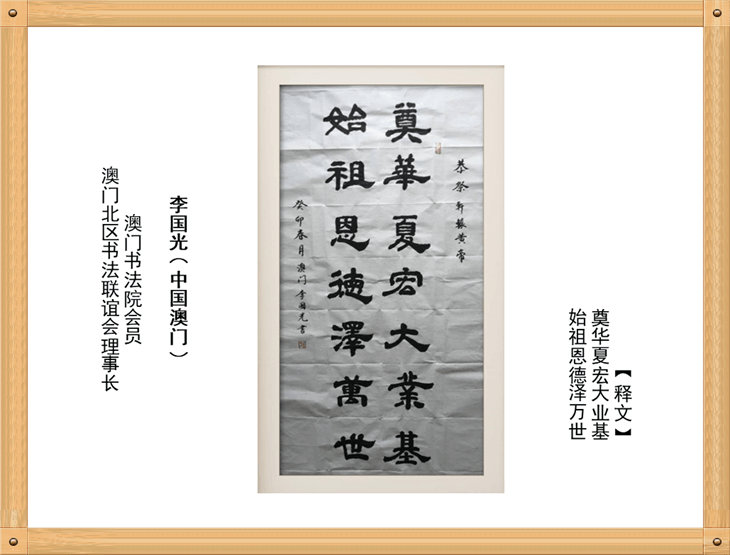 【释文】
奠华夏宏大业基
始祖恩德泽万世
恭祭轩辕黄帝
奠華夏宏大業基
始祖恩德澤萬世
癸卯春月澳门李国光書
李国光（中国澳门）
澳门书法院会员
澳门北区书法联谊会理事长